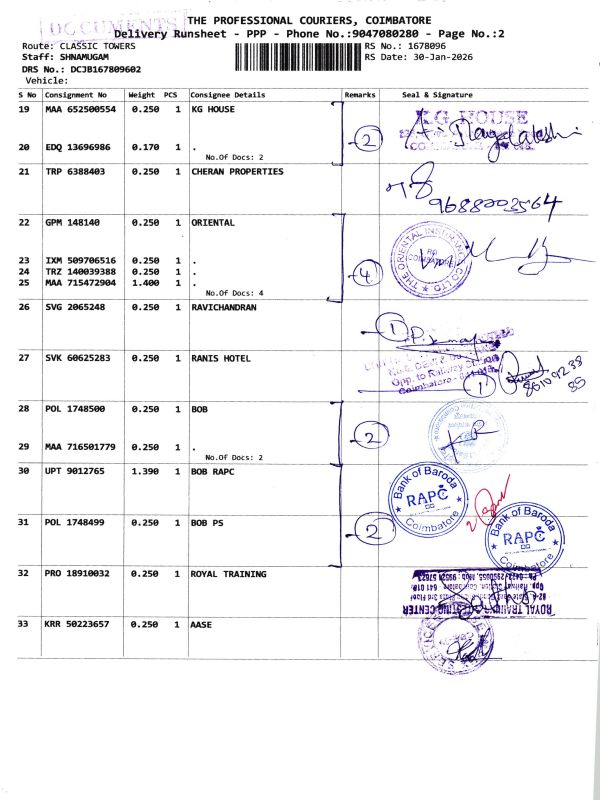 DOCUMENTS
THE PROFESSIONAL COURIERS, COIMBATORE
Delivery Runsheet - PPP - Phone No.:9047080280 - Page No.:2
Route: CLASSIC TOWERS RS No.: 1678096
Staff: SHNAMUGAM RS Date: 30-Jan-2026
DRS No.: DCJB167809602
Vehicle:
S No Consignment No Weight PCS Consignee Details Remarks Seal & Signature
19 MAA 652500554 0.250 1 KG HOUSE
KG HOUSE
2
20 EDQ 13696986 0.170 1 .
No.Of Docs: 2
21 TRP 6388403 0.250 1 CHERAN PROPERTIES
9688203564
22 GPM 148140 0.250 1 ORIENTAL
THE ORIENTAL INSURANCE CO. LTD.
COIMBATORE
23 IXM 509706516 0.250 1 .
24 TRZ 140039388 0.250 1 .
25 MAA 715472904 1.400 1 .
4
No.Of Docs: 4
26 SVG 2065248 0.250 1 RAVICHANDRAN
1
27 SVK 60625283 0.250 1 RANIS HOTEL
Opp. to Railway Station
Coimbatore - 641 018
1
86109238
85
28 POL 1748500 0.250 1 BOB
2
29 MAA 716501779 0.250 1 .
No.Of Docs: 2
30 UPT 9012765 1.390 1 BOB RAPC
Bank of Baroda
RAPC
Coimbatore
31 POL 1748499 0.250 1 BOB PS
2
Bank of Baroda
RAPC
Coimbatore
32 PRO 18910032 0.250 1 ROYAL TRAINING
ROYAL TRAINING TESTING CENTER
33 KRR 50223657 0.250 1 AASE